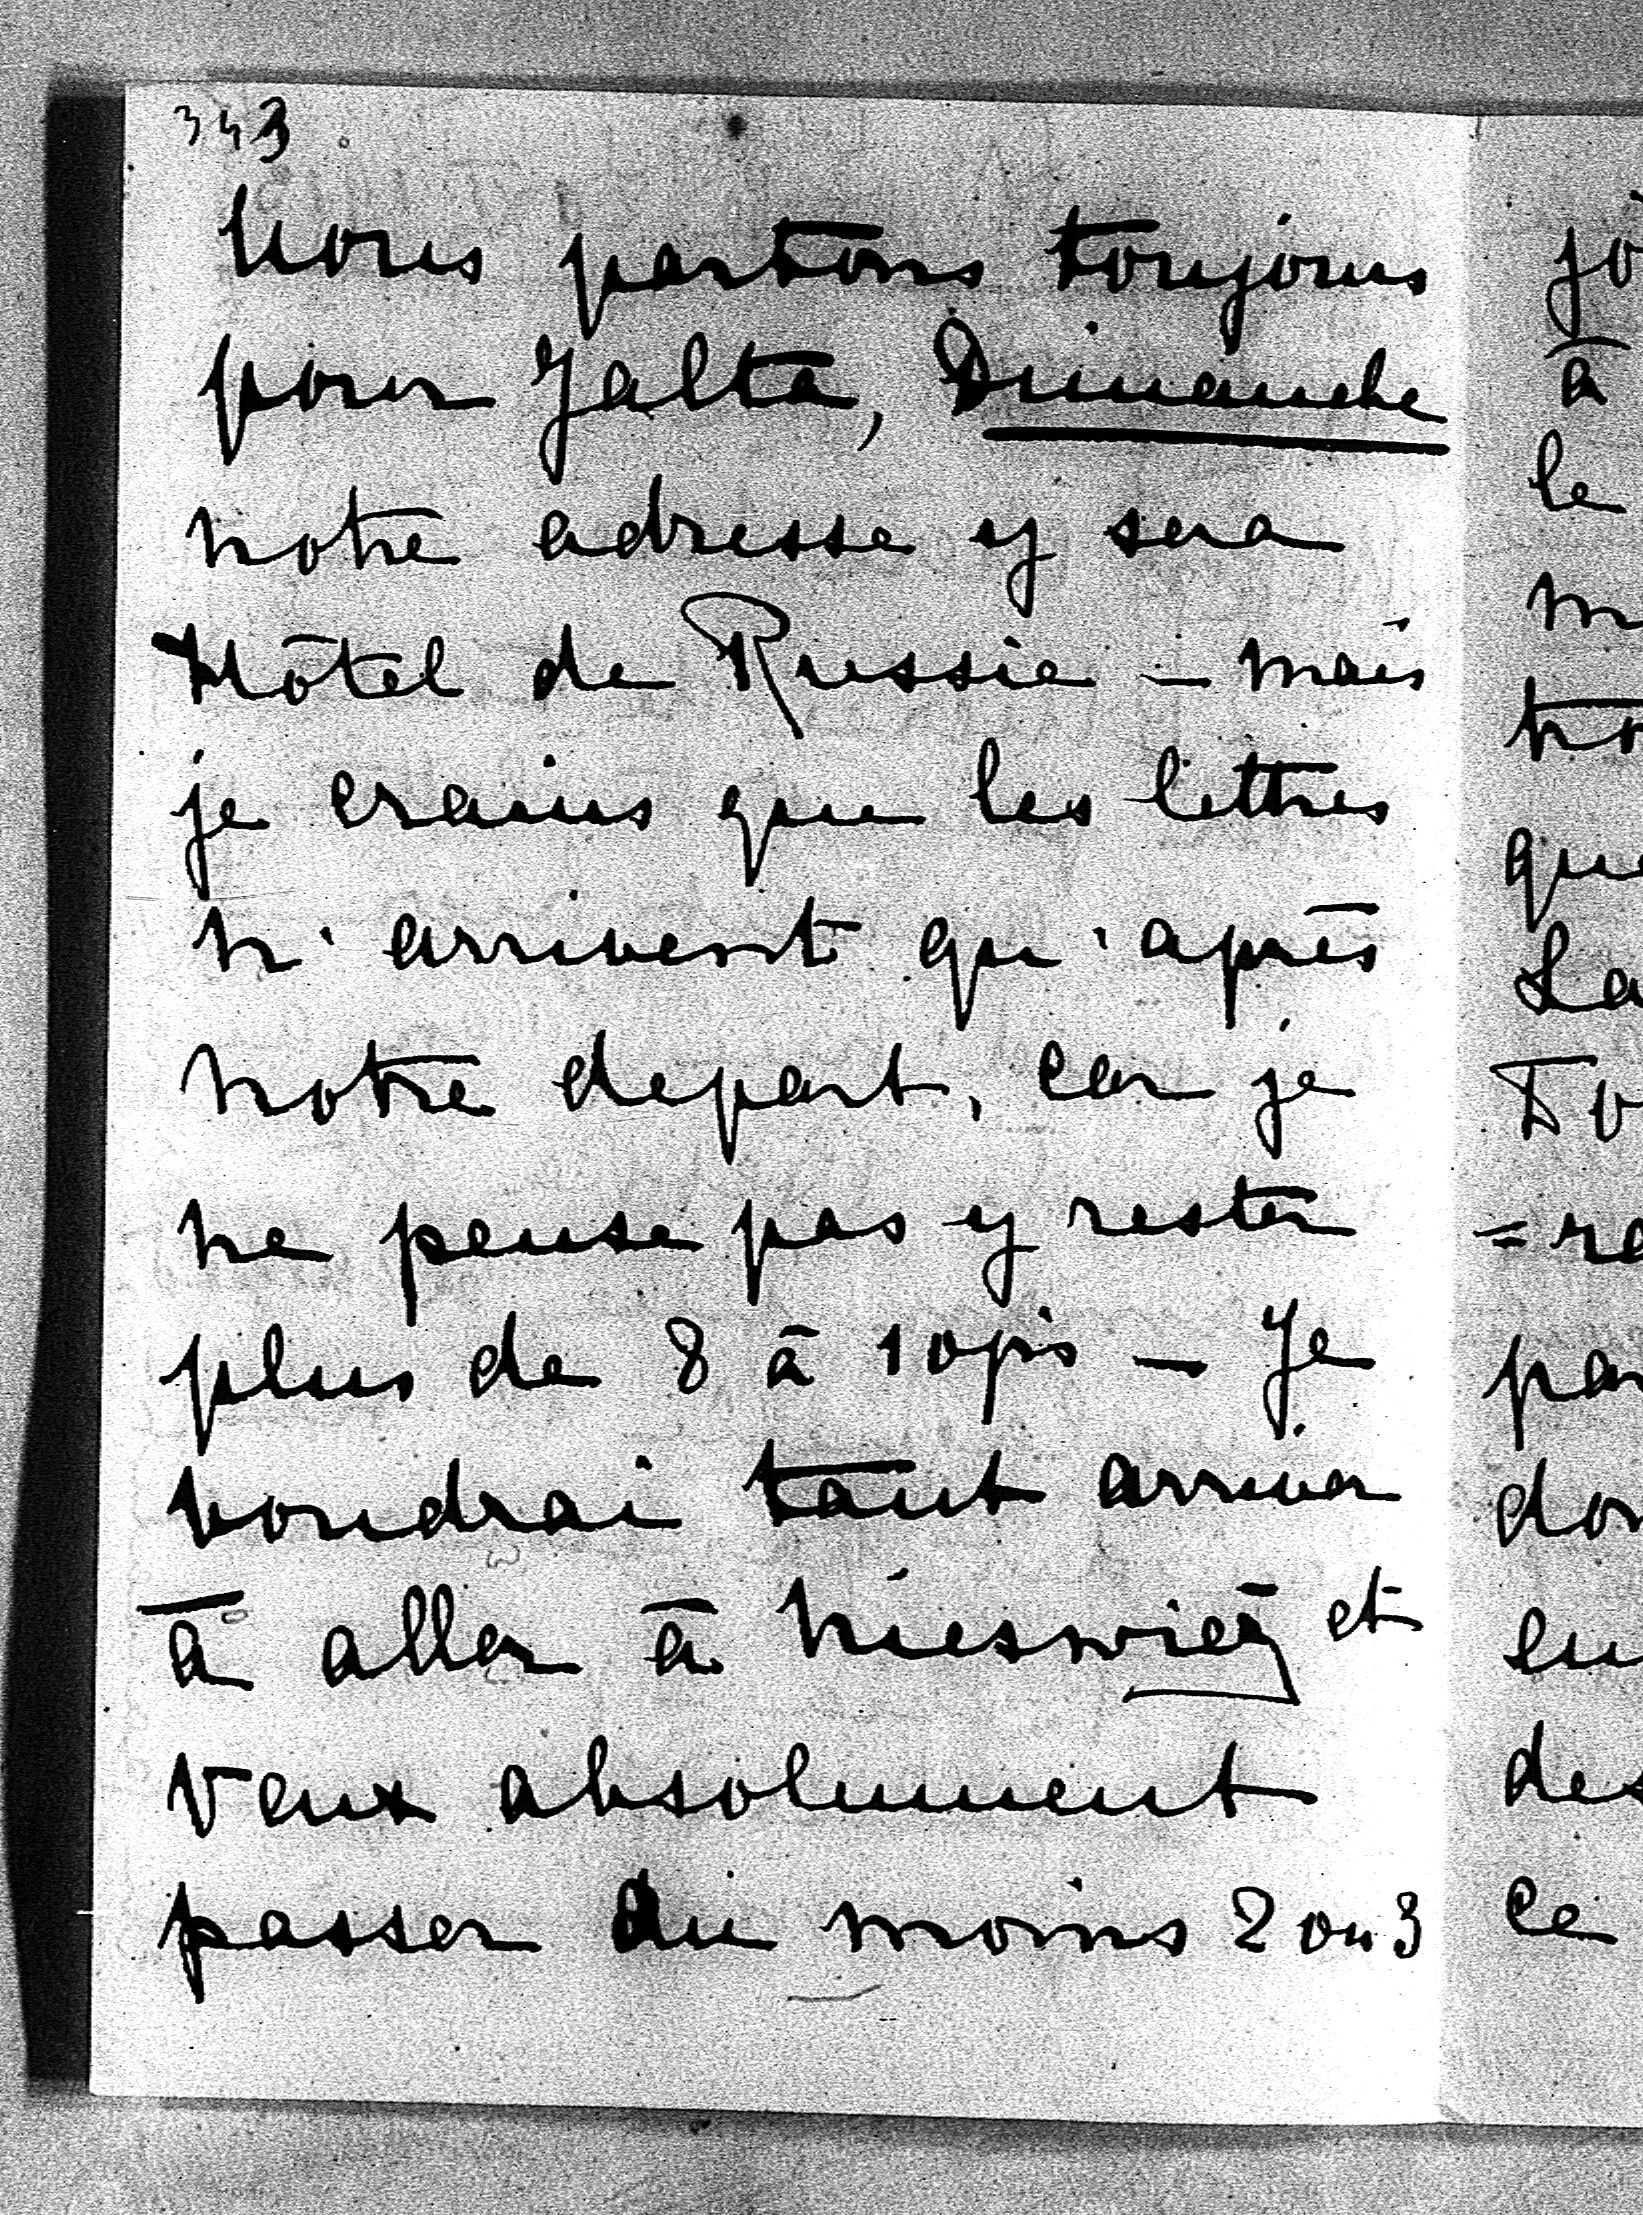 343
Nous partons toujours
pour Jalta, Dimanche
notre adresse y sera
Hôtel de Russie – mais
je crains que les lettres
n'arrivent qu'après
notre depart, car je
ne pense pas y rester
plus de 8 à 10 jrs – Je
voudrai tant arriver
à aller à Nieswież et
veux absolument
passer du moins 2 ou 3
jo
à
le
m
no
que
La
To
=re
par
don
en
des
ce